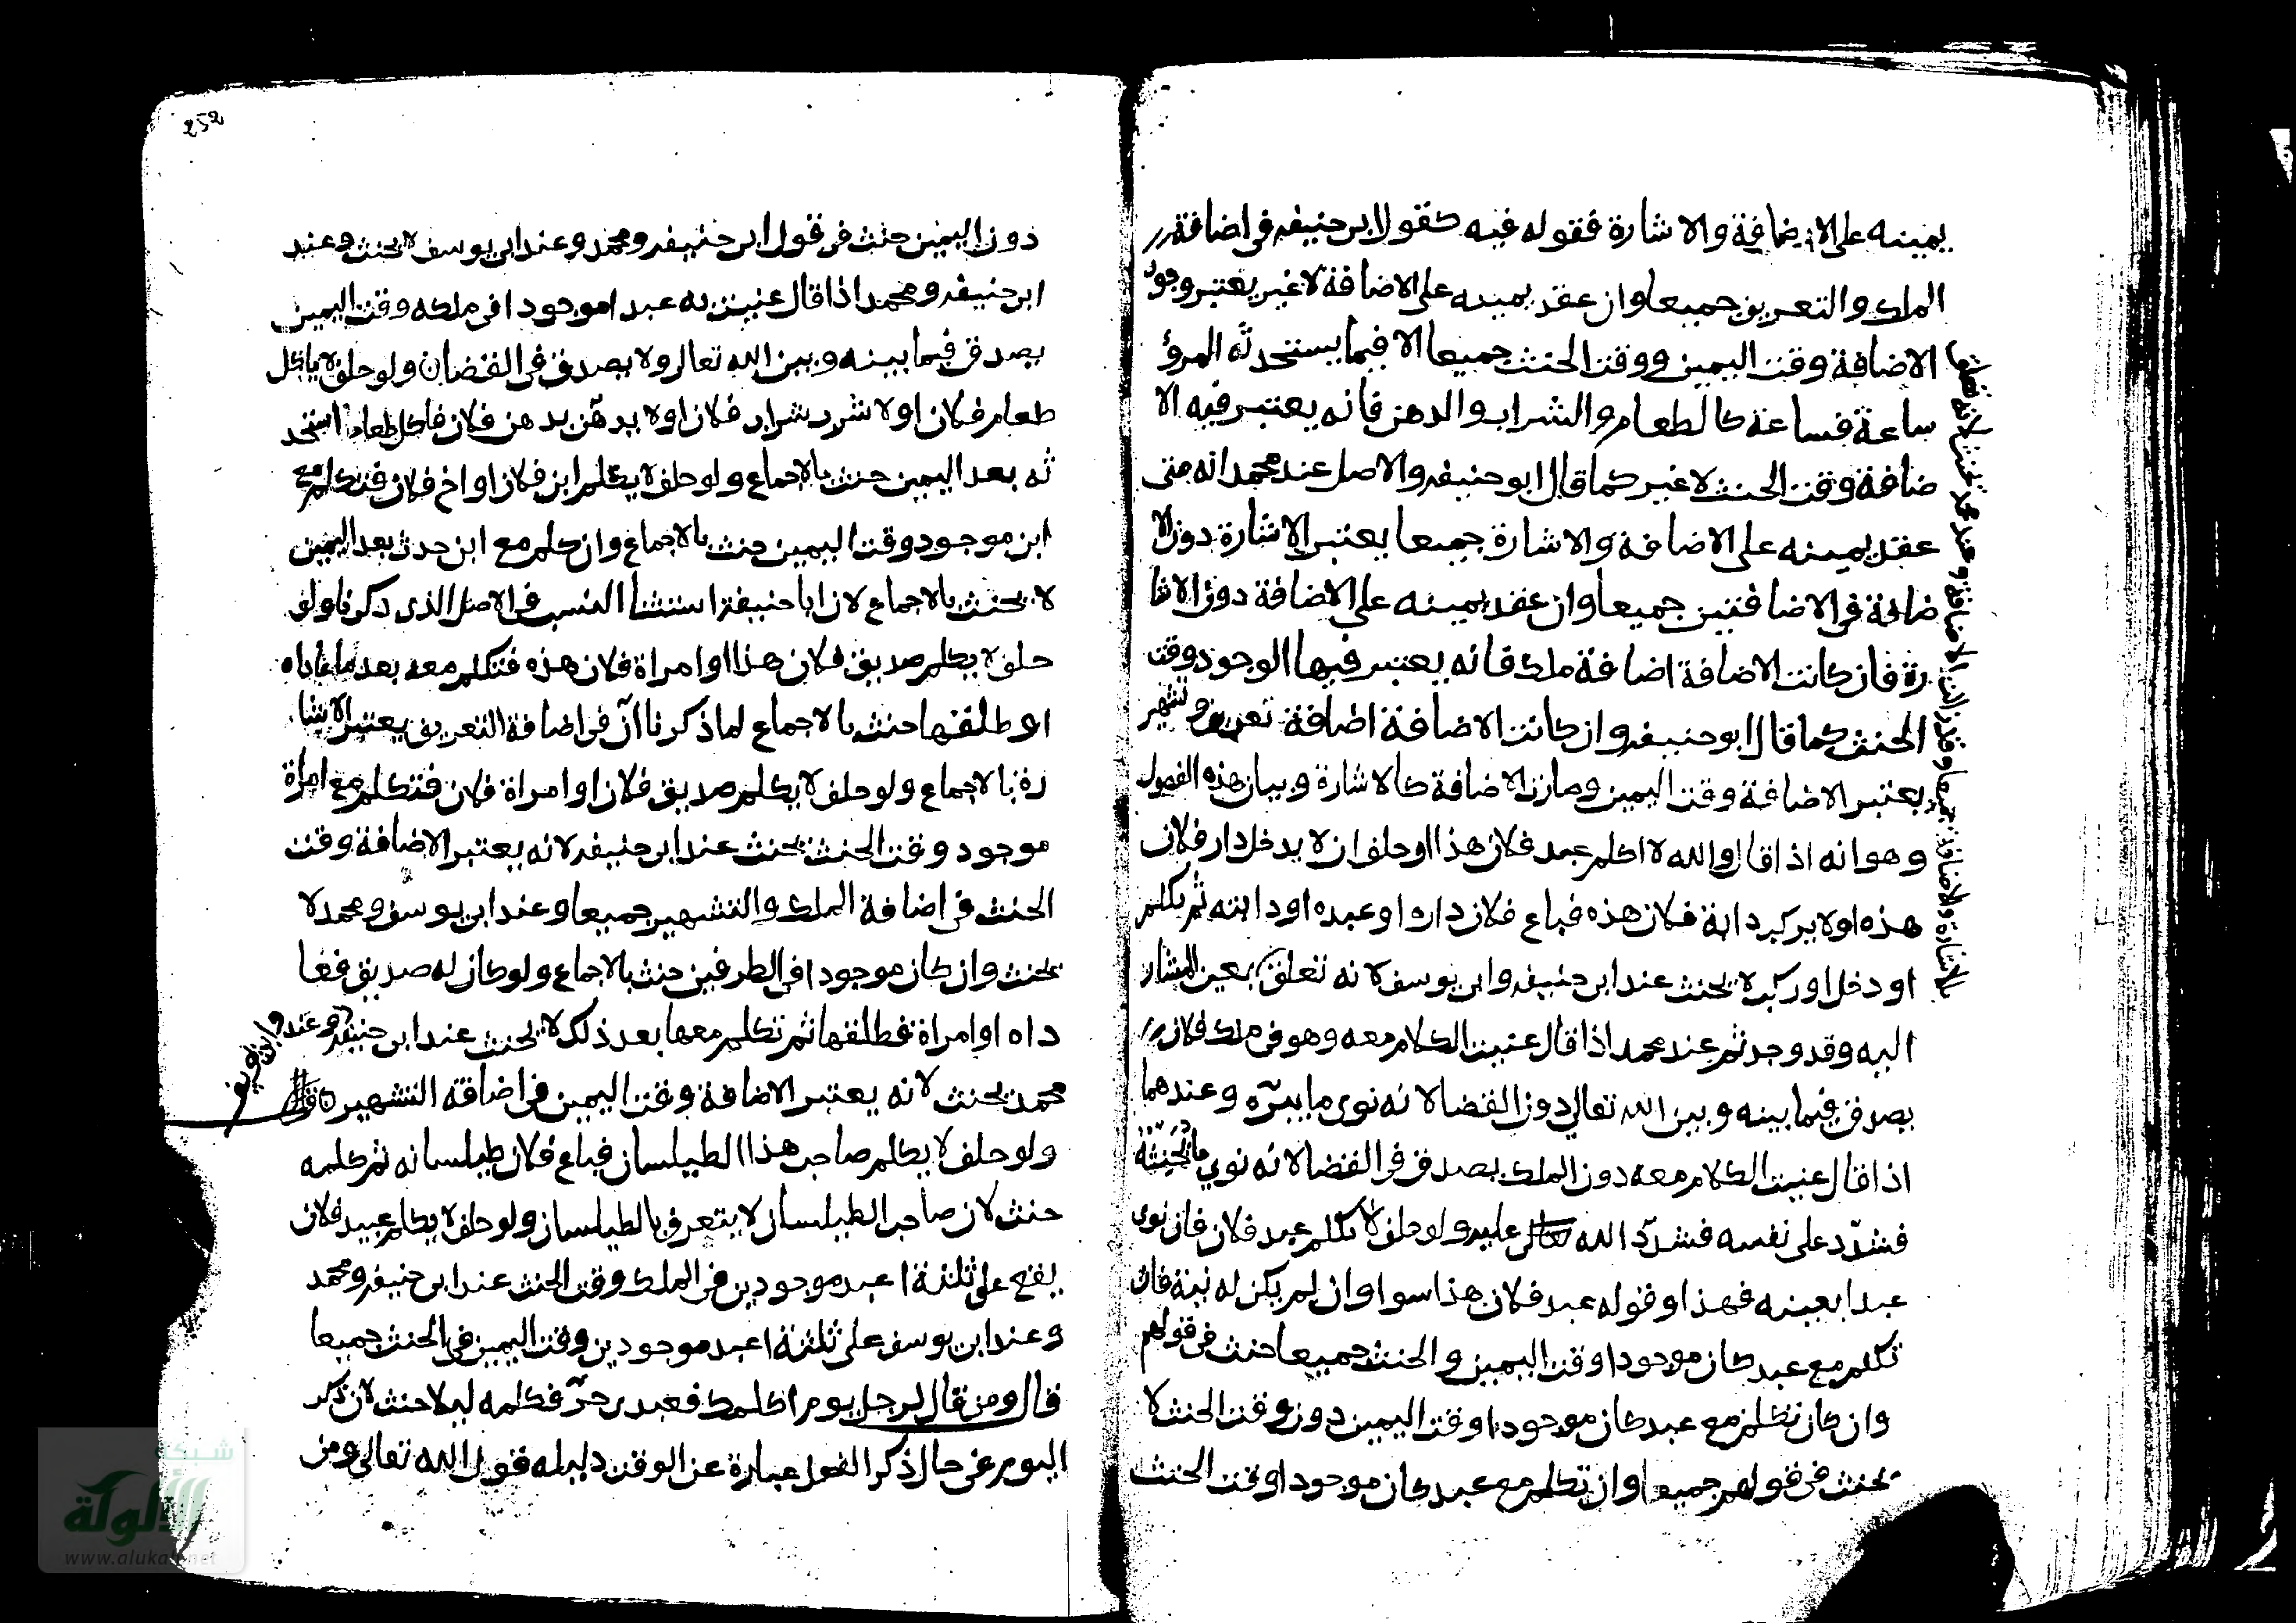 يمينه على الاضافة والاشارة فقوله فيه كقول ابى حنيفه فى اضافة
الملك والتعريف جميعا وان عقد يمينه على الاضافة لا غير يعتبر وجود
الاضافة وقت اليمين ووقت الحنث جميعا الا فيما يستحدثه المرؤ
ساعة فساعة كالطعام والشراب والدهن فانه يعتبر فيه الا
ضافة وقت الحنث لا غير كما قال ابو حنيفه والاصل عند محمد انه متى
عقد يمينه على الاضافة والاشارة جميعا يعتبر الاشارة دون الا
ضافة فى الاضافتين جميعا وان عقد يمينه على الاضافة دون الاشا
رة فان كانت الاضافة اضافة ملك فانه يعتبر فيها الوجود وقت
الحنث كما قال ابو حنيفه وان كانت الاضافة اضافة تعريف وتشهير
يعتبر الاضافة وقت اليمين وصارت الاضافة كالاشارة وبيان هذه الفصول
وهو انه اذا قال والله لا اكلم عبد فلان هذا او حلف ان لا يدخل دار فلان
هذه او لا يركب دابة فلان هذه فباع فلان داره او عبده او دابته ثم يكلم
او دخل او ركب لا يحنث عند ابى حنيفه وابى يوسف لانه تعلق بعين المشار
اليه وقد وجد ثم عند محمد اذا قال عنيت الكلام معه وهو فى ملك فلان
يصدق فيما بينه وبين الله تعالى دون القضا لانه نوى ما يبره وعندهما
اذا قال عنيت الكلام معه دون الملك يصدق فى القضا لانه نوى ما يحنثه
فشدد على نفسه فشدد الله تعالى عليه ولو حلف لا يكلم عبد فلان فان نوى
عبدا بعينه فهذا وقوله عبد فلان هذا سوا وان لم يكن له نية فان
تكلم مع عبد كان موجودا وقت اليمين والحنث جميعا حنث فى قولهم
وان كان تكلم مع عبد كان موجودا وقت اليمين دون وقت الحنث لا
يحنث فى قولهم جميعا وان تكلم مع عبد كان موجودا وقت الحنث
252
دون اليمين حنث فى قول ابى حنيفه ومحمد وعند ابى يوسف لا يحنث وعند
ابى حنيفه ومحمد اذا قال عنيت به عبدا موجودا فى ملكه وقت اليمين
يصدق فيما بينه وبين الله تعالى ولا يصدق فى القضا وان ولو حلف لا ياكل
طعام فلان او لا شرب شراب فلان او لا يدهن بدهن فلان فاكل طعاما استحد
ثه بعد اليمين حنث بالاجماع ولو حلف لا يكلم ابن فلان او اخ فلان فتكلم مع
ابن موجود وقت اليمين حنث بالاجماع وان كلم مع ابن حدث بعد اليمين
لا يحنث بالاجماع لان ابا حنيفة استثنا النسب فى الاصل الذى ذكرنا ولو
حلف لا يكلم صديق فلان هذا او امراة فلان هذه فتكلم معه بعد ما عاداه
او طلقها حنث بالاجماع لما ذكرنا ان فى اضافة التعريف يعتبر الاشا
رة بالاجماع ولو حلف لا يكلم صديق فلان او امراة فلان فتكلم مع امراة
موجود وقت الحنث يحنث عند ابى حنيفه لانه يعتبر الاضافة وقت
الحنث فى اضافة الملك والتشهير جميعا وعند ابى يوسف ومحمد لا
يحنث وان كان موجودا فى الطرفين حنث بالاجماع ولو كان له صديق فعا
داه او امراة فطلقها ثم تكلم معها بعد ذلك لا يحنث عند ابى حنيفه وعند ابى يوسف
محمد يحنث لانه يعتبر الاضافة وقت اليمين فى اضافة التشهير قال
ولو حلف لا يكلم صاحب هذا الطيلسان فباع فلان طيلسانه ثم كلمه
حنث لان صاحب الطيلسان لا يتعرف بالطيلسان ولو حلف لا يكلم عبيد فلان
يقع على ثلثة اعبد موجودين فى الملك وقت الحنث عند ابى حنيفه ومحمد
وعند ابى يوسف على ثلثة اعبد موجودين وقت اليمين فى الحنث جميعا
قال ومن قال لرجل يوم اكلمك فعبدى حر فكلمه ليلا حنث لان ذكر
اليوم فى حال ذكر الفعل عبارة عن الوقت دليله قول الله تعالى ومن
شبكة
الألوكة
www.alukah.net